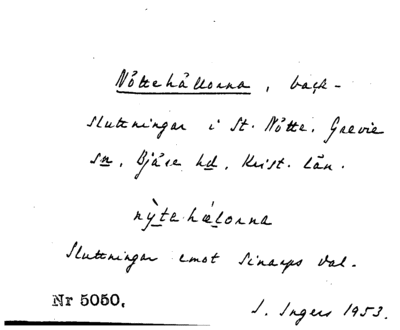 Nöttehällorna, back-
sluttningar i St. Nötte. Grevie
sn, Bjäre hd, Krist. län.
nỳtehælorna
Sluttningar emot Sinarps dal.
Nr 5050.
I. Ingers 1953.